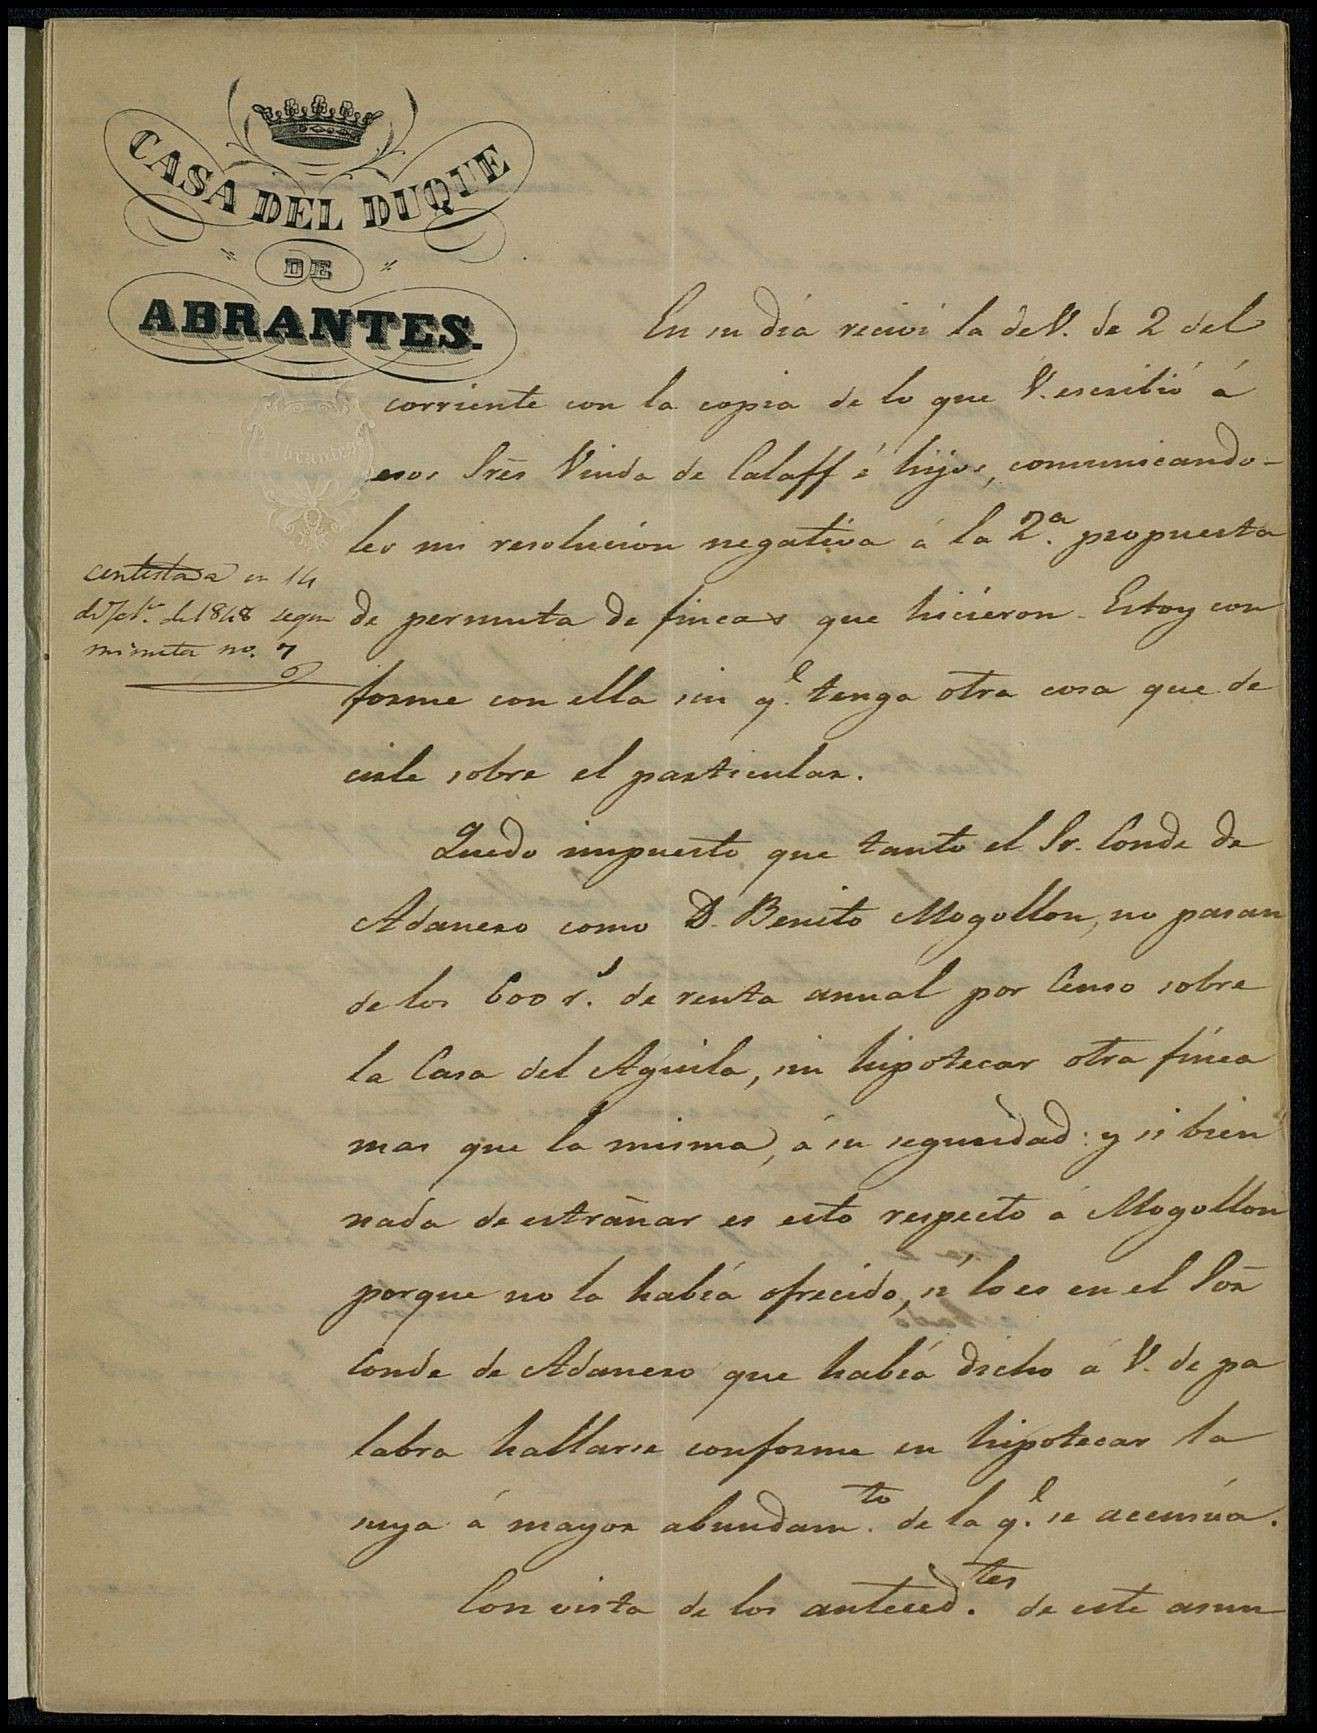 CASA DEL DUQUE
DE
ABRANTES.
En su día recivi la de V. de 2 del
corriente con la copia de lo que V. escribió á
esos Sres Viuda de Calaff é hijos, comunicando-
les mi resolucion negativa á la 2.ª propuesta
de permuta de fincas que hicieron. Estoy con
forme con ella sin q.e tenga otra cosa que de
cirle sobre el particular.
contestada en 14
de 1848 segun
minuta no. 7
Quedo impuesto que tanto el Sr. Conde de
Adanero como D. Benito Mogollon, no pasan
de los 600 r.s de renta anual por Censo sobre
la Casa del Aguila, sin hipotecar otra finca
mas que la misma, á su seguridad: y si bien
nada de estrañar es esto respecto á Mogollon
porque no la había ofrecido, si lo es en el Sōr
Conde de Adanero que había dicho á V. de pa
labra hallarse conforme en hipotecar la
suya á mayor abundam.to de la q.e se acensúa.
Con vista de los anteced.tes de este asun